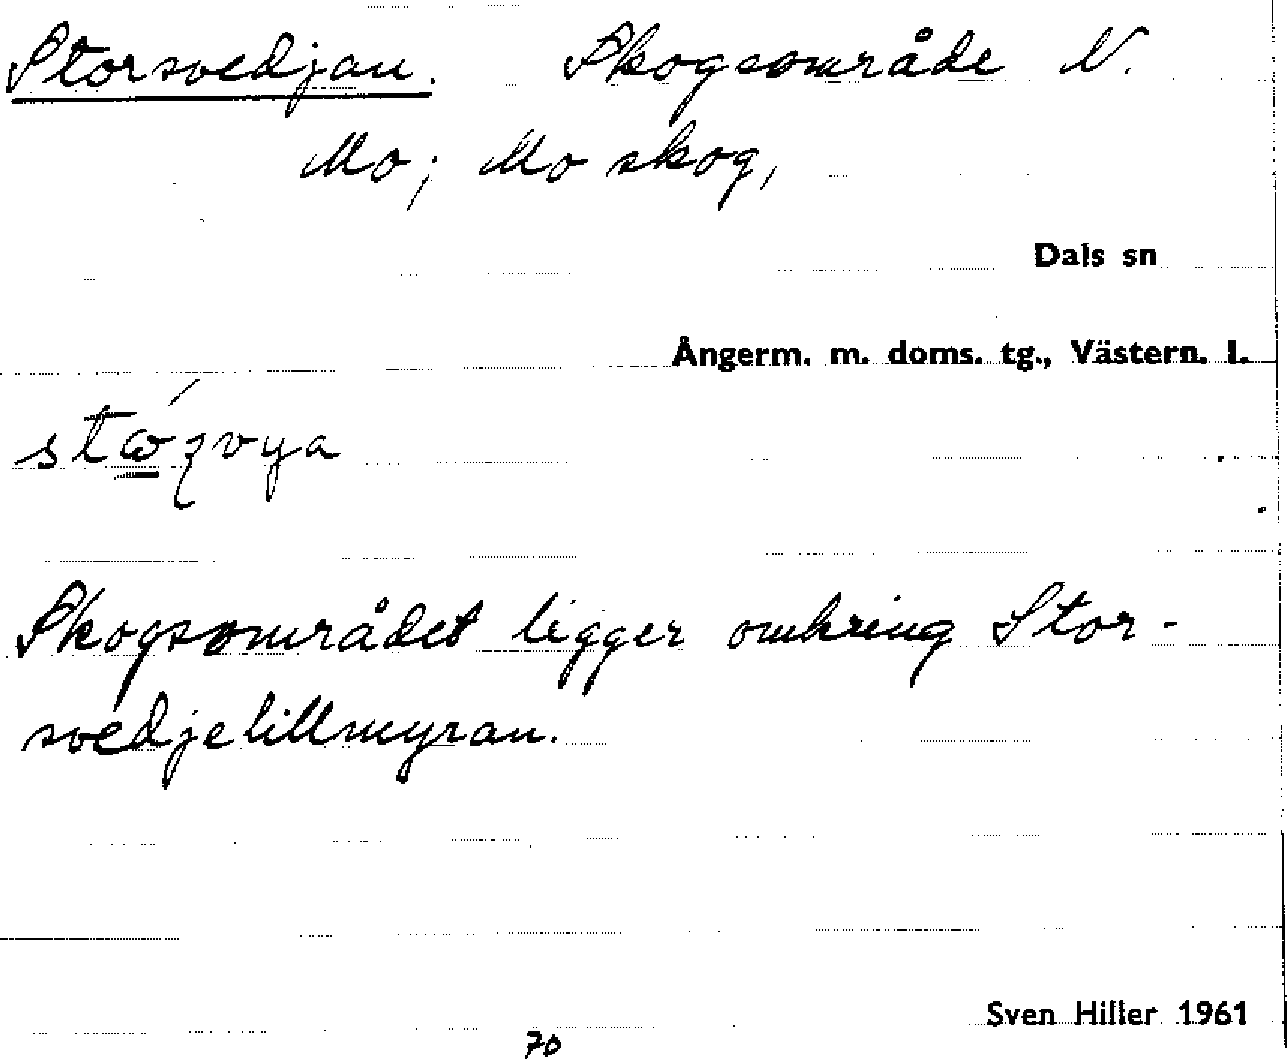 Storsvedjan. Skogsområde N.
Mo; Mo skog,
Dals sn
Ångerm. m. doms. tg., Västern. l.
Skogsområdet ligger omkring Stor-
svedjelillmyran.
Sven Hiller 1961
70